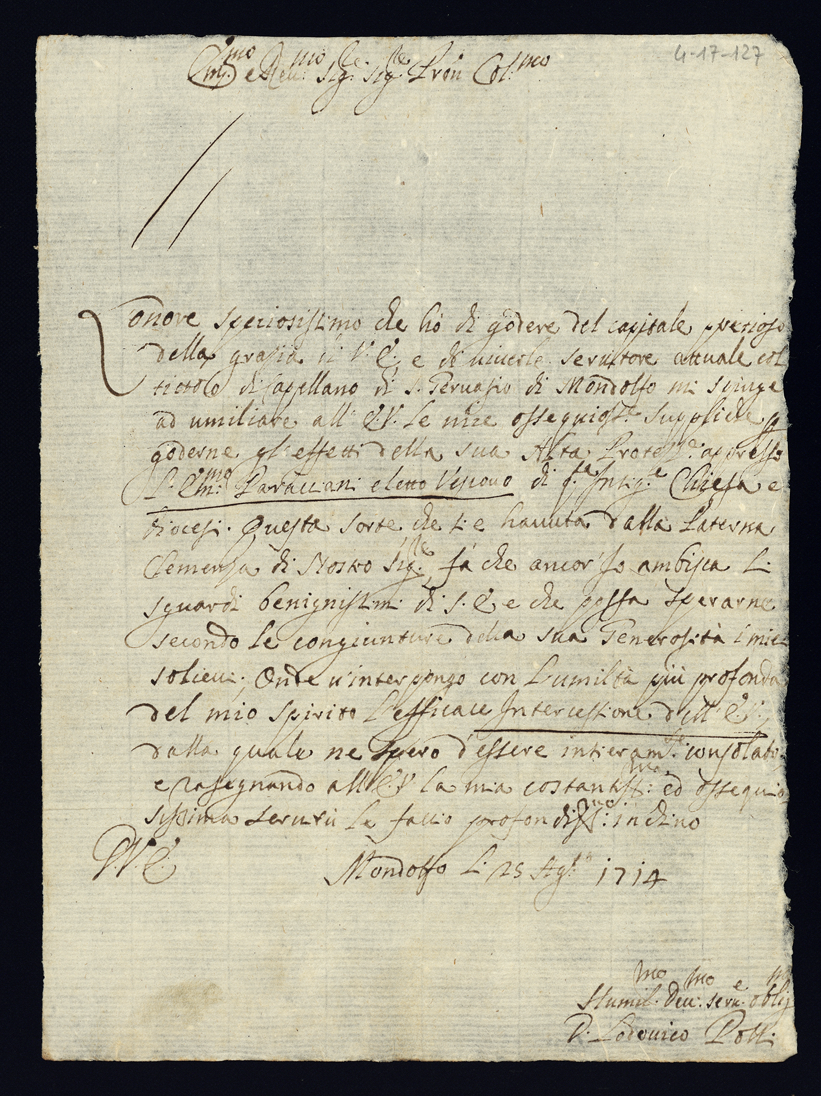 4-17-127
Em:mo e Reu:mo Sig:re Sig:re Pron Col:mo
L'onore speciosissimo che hò di godere del capitale prezioso
della grazia di V. E., e di viuerle seruitore attuale col
tittolo di Capellano di S. Geruasio di Mondolfo mi spinge
ad umiliare all' E.V. le mie ossequios:e suppliche p
goderne gl'effetti della sua Alta Protez:ne appresso
L'Em:mo Paracciani eletto Vescouo di q:ta Insig:e Chiesa e
diocesi. Questa sorte, che s'è hauuta dalla Paterna
Clemenza di Nostro Sig:re, fà che ancor'Io ambisca li
sguardi benignissimi di S. E. e che possa sperarne
secondo le congiunture della sua Generosità i miei
solieui; Onde u'interpongo con l'umiltà più profonda
del mio spirito l'efficace Intercessione dell'E.V.,
dalla quale ne spero d'essere intieram:te consolato
e rasegnando all'E.V. la mia costantiss:ma ed ossequio
sissima seruitù le faccio profondiss:mo inchino
D.V.E. Mondolfo li 25 Ag:to 1714
Humil:mo deu:mo seru:e oblig:mo
D. Lodouico Polli